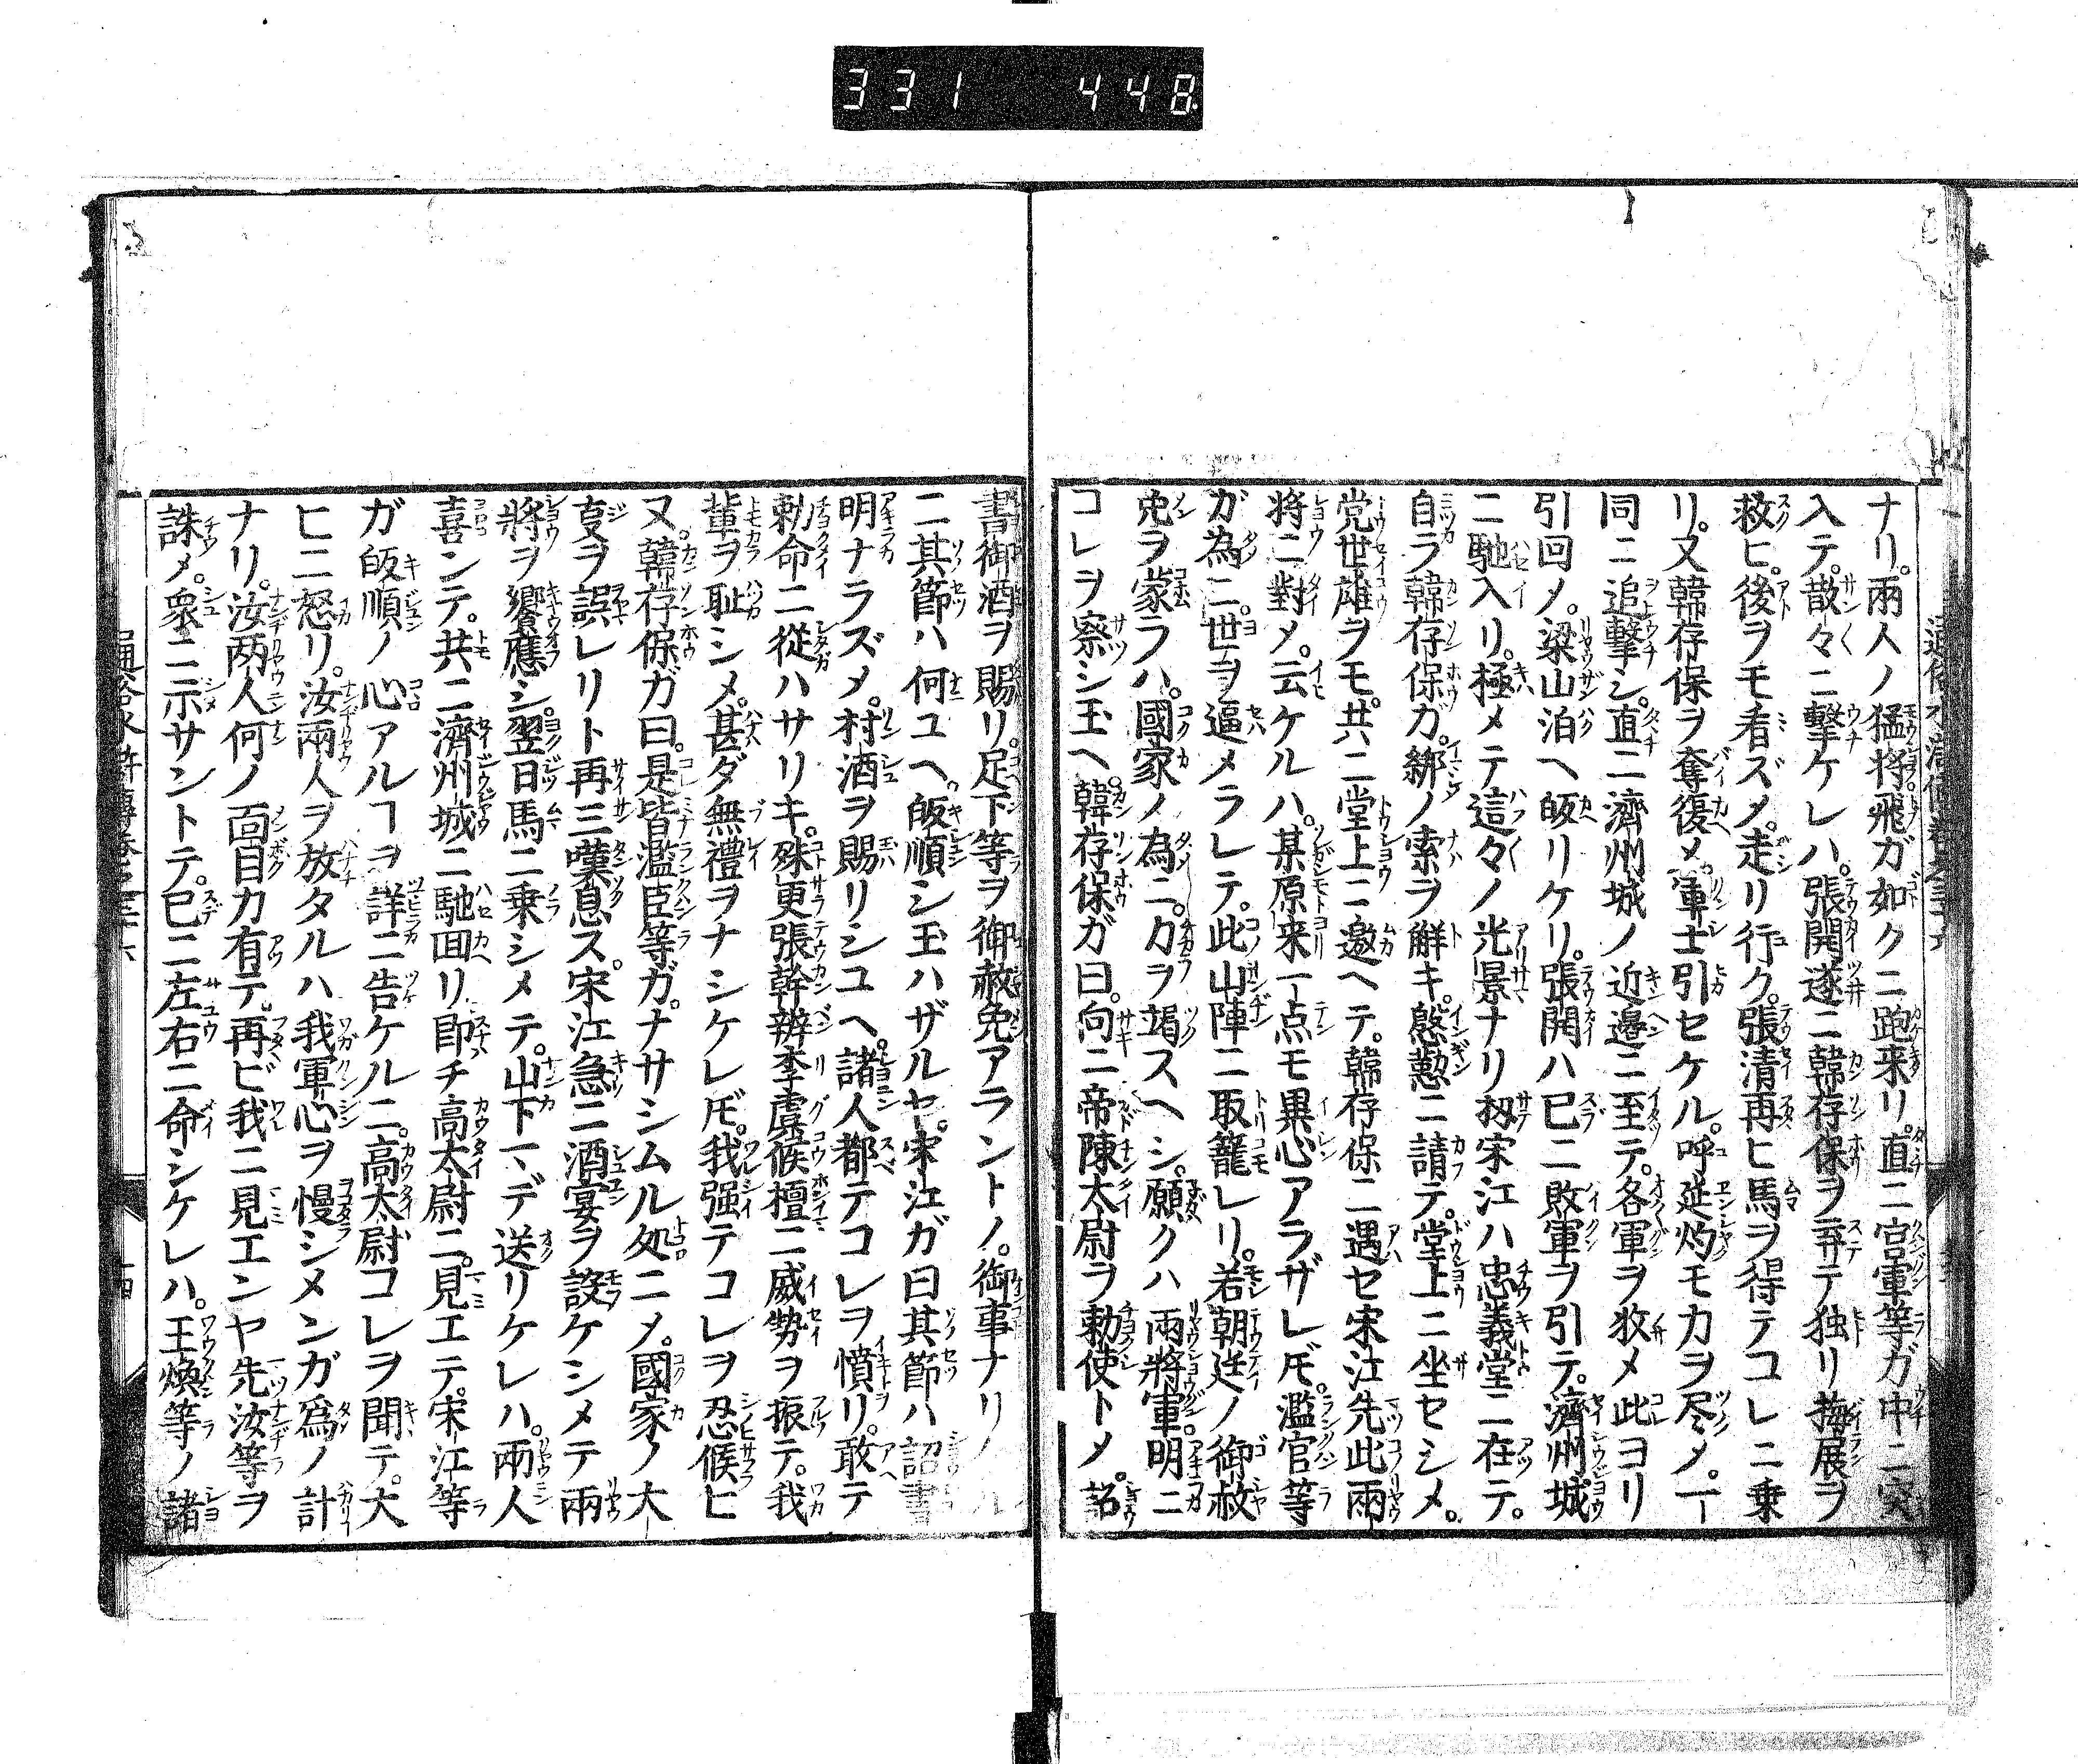 331 448
ナリ。兩人ノ猛將飛ガ如クニ跑来リ。直ニ官軍等ガ中ニ突
入テ。散々ニ擊ケレハ。張開遂ニ韓存保ヲ弃テ独リ梅展ヲ
救ヒ。後ヲモ看ズメ。走リ行ク。張清再ヒ馬ヲ得テコレニ乗
リ。又韓存保ヲ奪復メ。軍士引セケル。呼延灼モカヲ尽メ。一
同ニ追擊シ。直ニ濟州城ノ近邉ニ至テ。各軍ヲ收メ此ヨリ
引回メ。梁山泊ヘ皈リケリ。張開ハ已ニ敗軍ヲ引テ。濟州城
ニ馳入リ。極メテ這々ノ光景ナリ扨宋江ハ忠義堂ニ在テ。
自ラ韓存保ガ。綁ノ索ヲ觧キ。慇懃ニ請テ。堂上ニ坐セシメ。
党世雄ヲモ。共ニ堂上ニ邀ヘテ。韓存保ニ遇セ宋江先此兩
將ニ對メ。云ケルハ。某原来一点モ異心アラザレ𪜈。濫官等
ガ為ニ。世ヲ逼メラレテ。此山陣ニ取籠レリ。若朝廷ノ御赦
免ヲ蒙ラハ。國家ノ為ニ。力ヲ竭スヘシ。願クハ兩將軍。明ニ
コレヲ察シ玉ヘ。韓存保ガ曰。向ニ帝陳太尉ヲ勅使トメ。詔
書御酒ヲ賜リ。足下等ヲ御赦免アラントノ。御事ナリ
ニ其節ハ何ユヘ。皈順シ玉ハザルヤ。宋江ガ曰其節ハ詔書
明ナラズメ。村酒ヲ賜リシユヘ。諸人都テコレヲ憤リ。敢テ
勅命ニ從ハサリキ。殊更張幹辨李虞候檀ニ威勢ヲ振テ。我
輩ヲ恥シメ。甚ダ無禮ヲナシケレ𪜈。我强テコレヲ忍候ヒ
ヌ。韓存保ガ曰。是皆濫臣等ガ。ナサシムル処ニメ。國家ノ大
叓ヲ誤レリト再三嘆息ス。宋江急ニ酒宴ヲ設ケシメテ兩
將ヲ饗應シ。翌日馬ニ乗シメテ。山下マデ送リケレハ。兩人
喜ンテ。共ニ濟州城ニ馳囬リ。即チ高太尉ニ。見エテ。宋江等
ガ皈順ノ心アルヿヲ詳ニ告ケルニ。高太尉コレヲ聞テ。大
ヒニ怒リ。汝兩人ヲ放タルハ我軍心ヲ慢シメンガ爲ノ計
ナリ。汝两人何ノ靣目カ有テ。再ビ我ニ見エンヤ先汝等ヲ
誅メ。衆ニ示サントテ。已ニ左右ニ命シケレハ。王煥等ノ諸